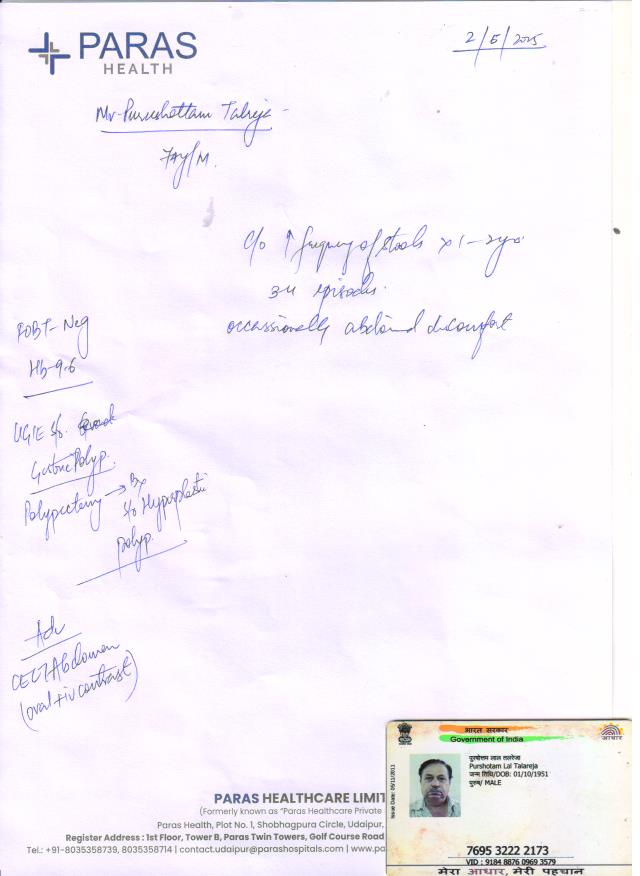 PARAS
HEALTH
2/5/2025
Mr. Purushottam Talreja
74y/M
c/o ↑ frequency of stools x 1-2 yrs
3-4 episodes.
occassionally abdominal discomfort
FOBT- Neg
Hb-9.6
UGIE s/o
Gastric Polyp.
Polypectomy → Bx
s/o Hyperplastic
Polyp.
Adv
CECT Abdomen
(oral + iv contrast)
भारत सरकार
Government of India
आधार
Issue Date: 05/11/2011
पुरषोत्तम लाल तलरेजा
Purshotam Lal Talareja
जन्म तिथि/DOB: 01/10/1951
पुरुष/ MALE
7695 3222 2173
VID : 9184 8876 0969 3579
मेरा आधार, मेरी पहचान
PARAS HEALTHCARE LIMIT
(Formerly known as "Paras Healthcare Private
Paras Health, Plot No. 1, Shobhagpura Circle, Udaipur,
Register Address : 1st Floor, Tower B, Paras Twin Towers, Golf Course Road
Tel.: +91-8035358739, 8035358714 | contact.udaipur@parashospitals.com | www.pa